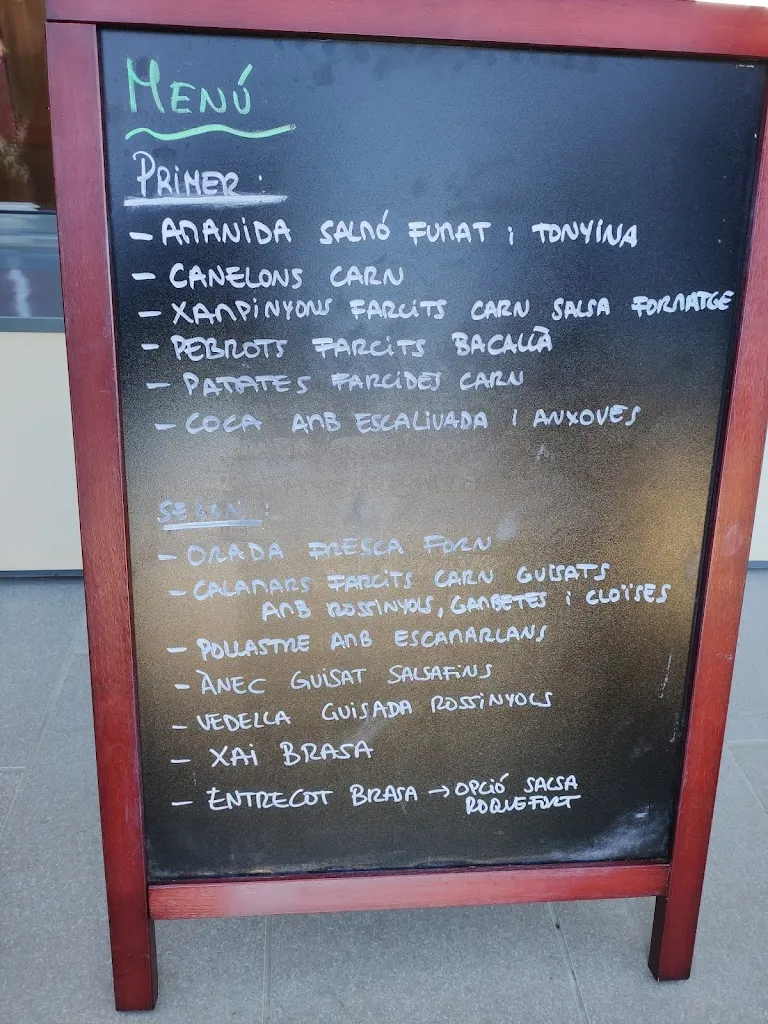 MENÚ
PRIMER:
- AMANIDA SALMÓ FUMAT i TONYINA
- CANELONS CARN
- XAMPINYONS FARCITS CARN SALSA FORMATGE
- PEBROTS FARCITS BACALLÀ
- PATATES FARCIDES CARN
- COCA AMB ESCALIVADA I ANXOVES
SEGON:
- ORADA FRESCA FORN
- CALAMARS FARCITS CARN GUISATS
AMB ROSSINYOLS, GAMBETES i CLOÏSES
- POLLASTRE AMB ESCAMARLANS
- ÀNEC GUISAT SALSAFINS
- VEDELLA GUISADA ROSSINYOLS
- XAI BRASA
- ENTRECOT BRASA → OPCIÓ SALSA
ROQUEFORT